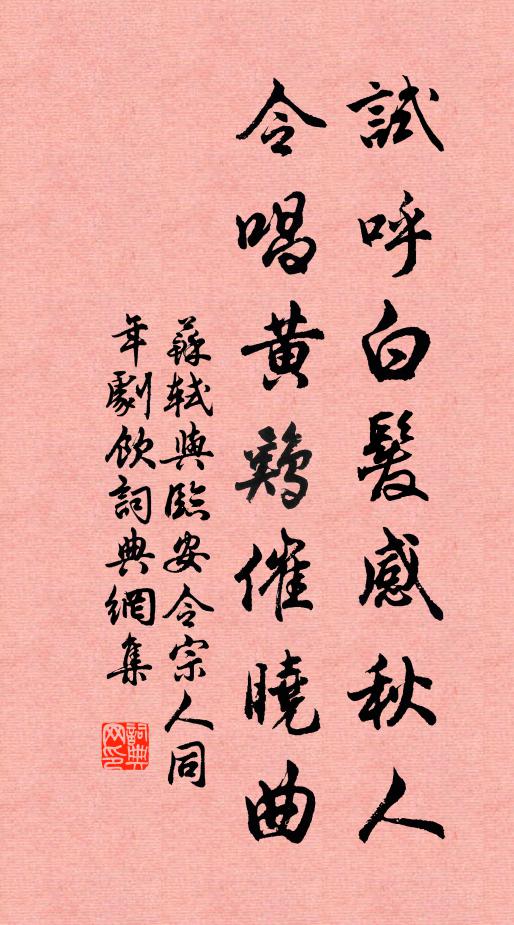 試呼白髮感秋人
令唱黃鷄催曉曲
蘇軾與臨安令宗人同
年劇飲詞典網集
詞典
网印